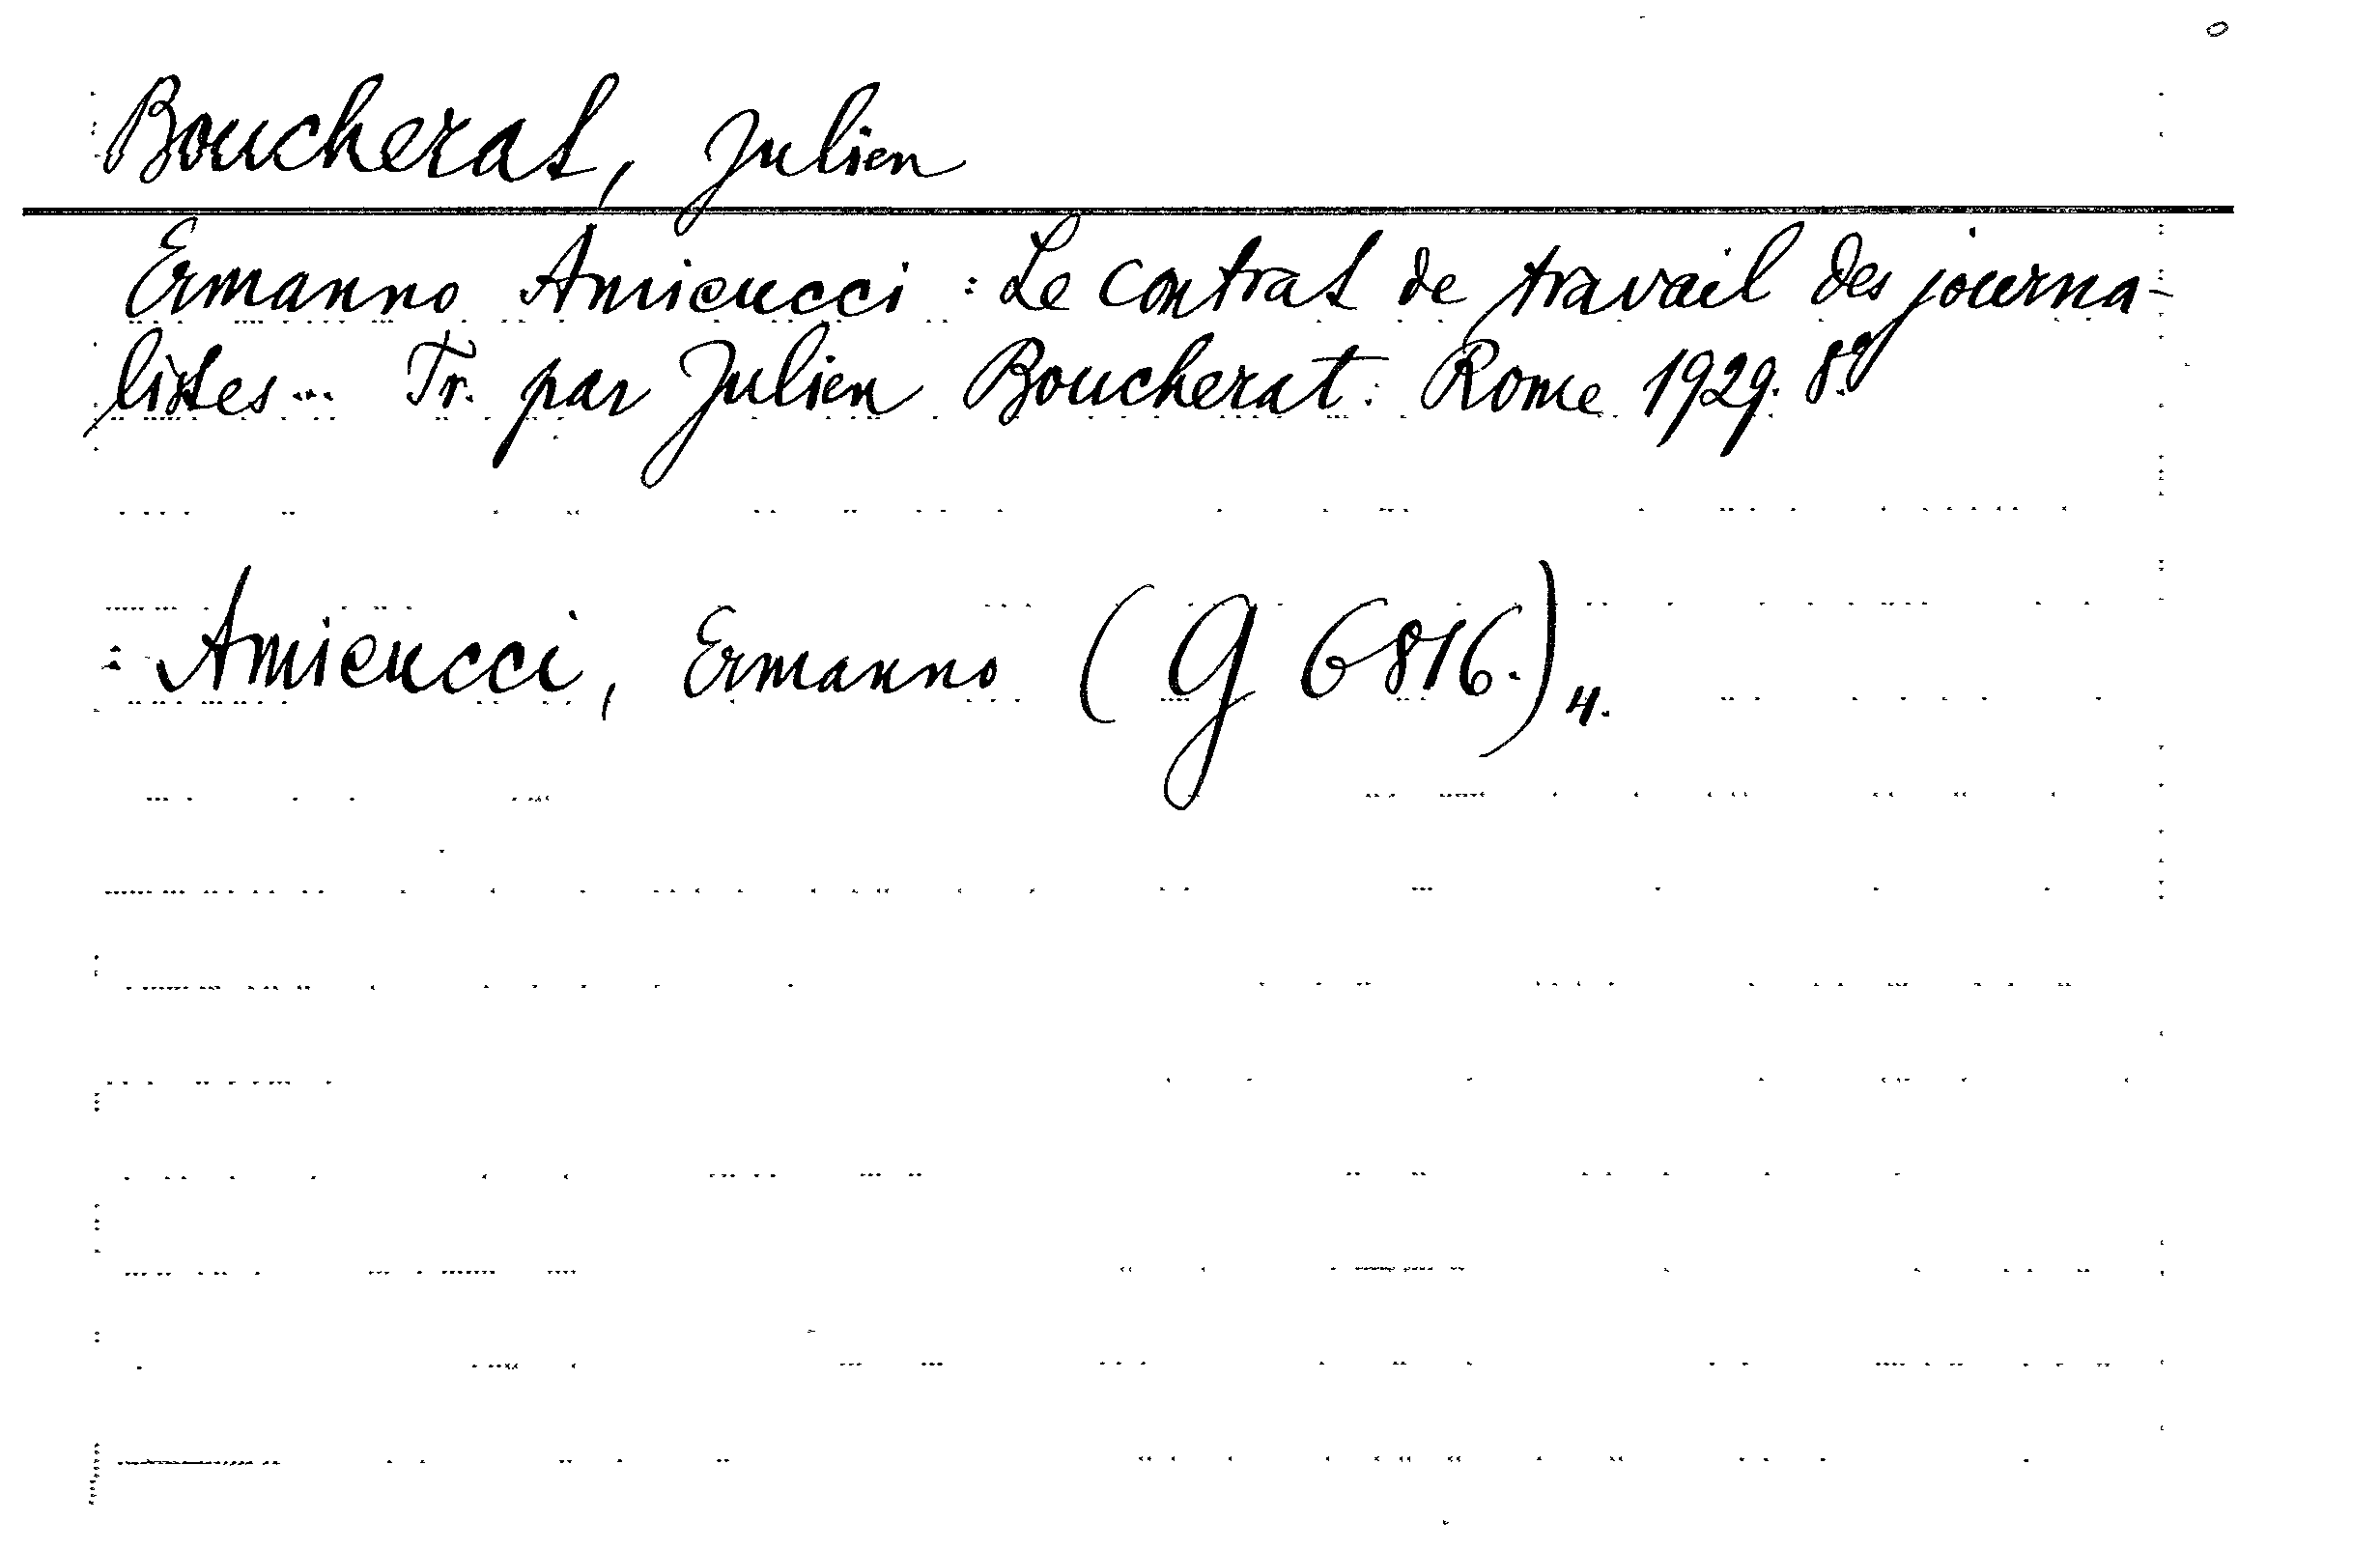 Boucherat, Julien
Ermanno Amicucci : Le contrat de travail des journa-
listes... Tr. par Julien Boucherat. Rome 1929. 8.°
: Amicucci, Ermanno (G 6816.) 4.